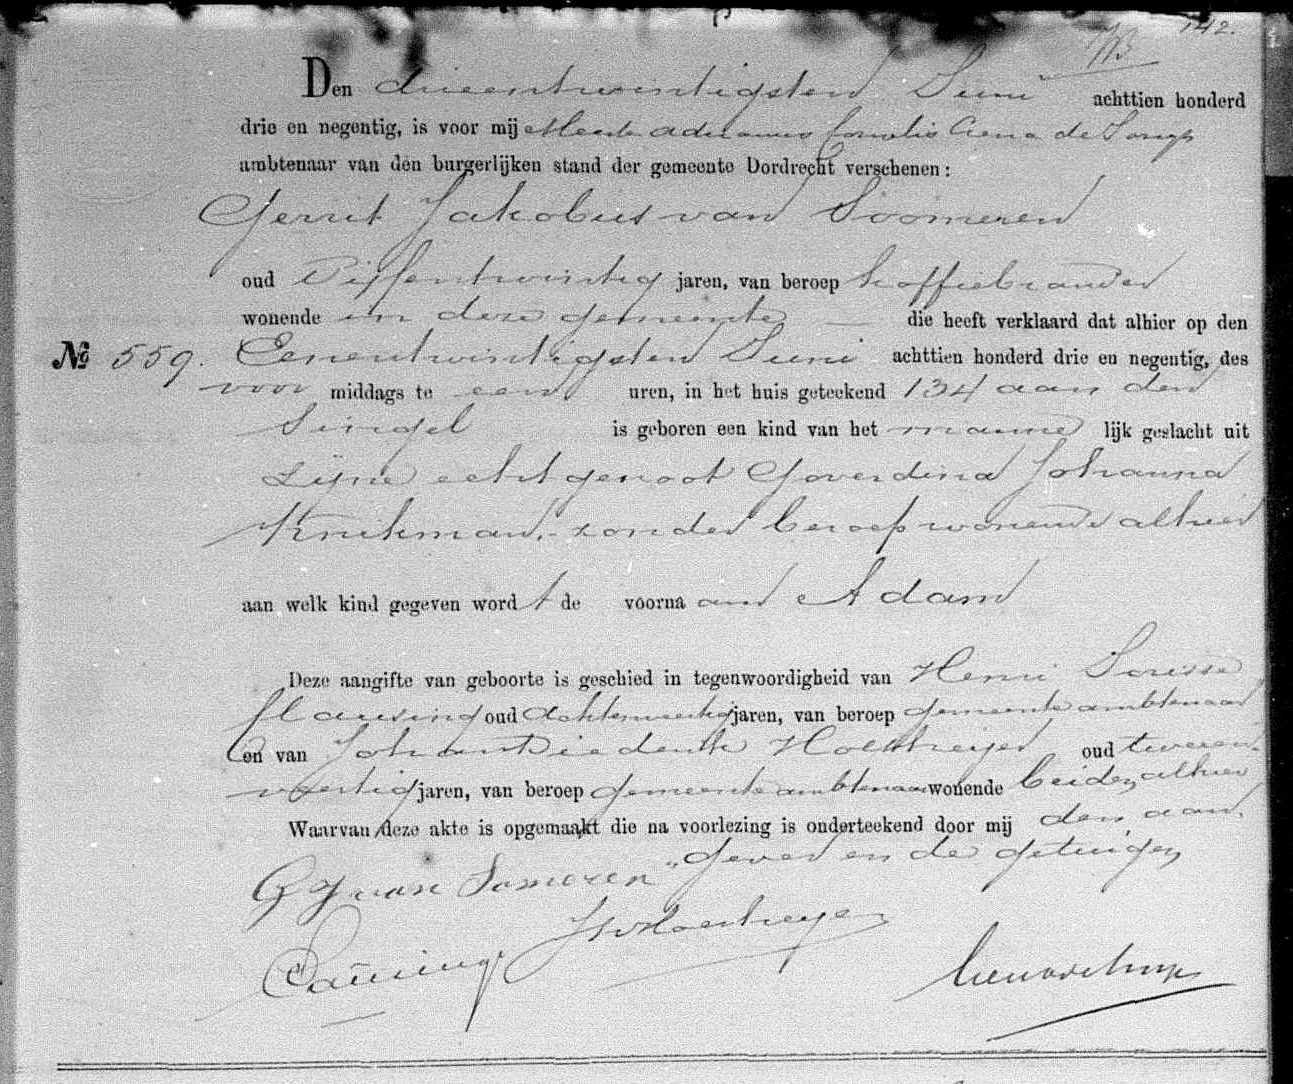 142.
Den drieentwintigsten Juni achttien honderd
drie en negentig, is voor mij Meester Adrianus Cornelis Crena de Jongh
ambtenaar van den burgerlijken stand der gemeente Dordrecht verschenen:
Gerrit Jakobus van Soomeren
oud Vijfentwintig jaren, van beroep koffiebrander
wonende in deze gemeente die heeft verklaard dat alhier op den
No 559. Eenentwintigsten Juni achttien honderd drie en negentig, des
voor middags te een uren, in het huis geteekend 134 aan den
Singel is geboren een kind van het manne lijk geslacht uit
zijne echtgenoot Goverdina Johanna
Kruikman, zonder beroep wonende alhier
aan welk kind gegeven wordt de voorna am Adam
Deze aangifte van geboorte is geschied in tegenwoordigheid van Henri
oud achtenveertig jaren, van beroep gemeente ambtenaar
en van Johan Diederik oud tweeen-
veertig jaren, van beroep gemeente ambtenaar wonende beiden alhier
Waarvan deze akte is opgemaakt die na voorlezing is onderteekend door mij den aan-
gever en de getuigen
G J van Someren